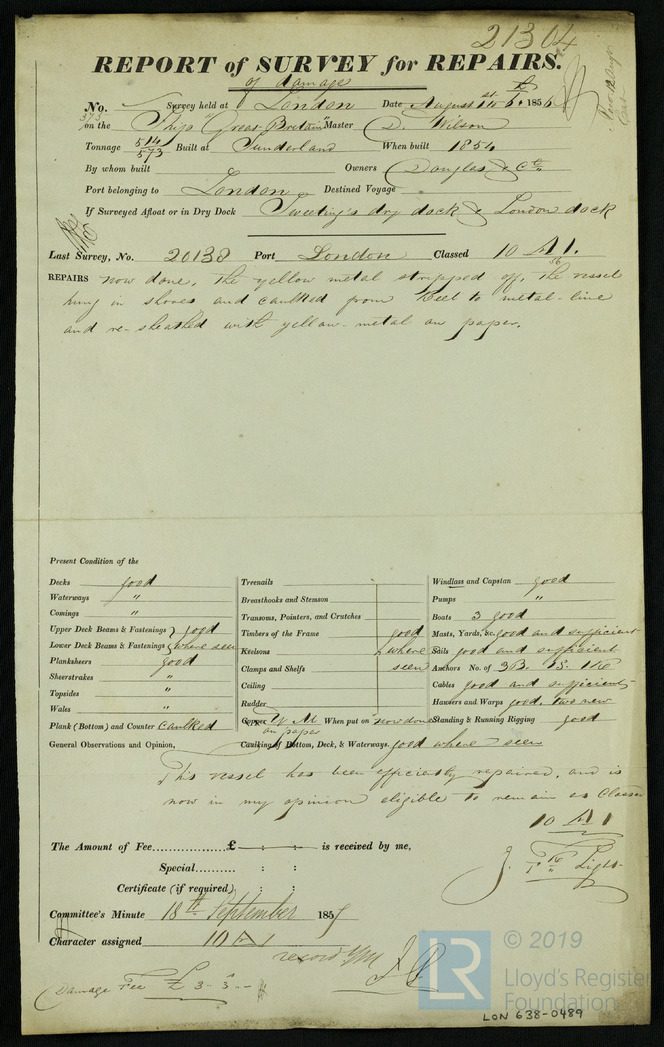 21304
REPORT of SURVEY for REPAIRS.
of damage
No. Survey held at London Date August 1st 6th 1856
on the Ship "Great Britain" Master D. Wilson
Tonnage 514/573 Built at Sunderland When built 1854
By whom built Owners Douglas & Co
Port belonging to London Destined Voyage
If Surveyed Afloat or in Dry Dock Tweeting's dry dock & London dock
Last Survey, No. 20138 Port London Classed 10 A1.
56
REPAIRS now done, the yellow metal stripped off, the vessel
hung in shores and caulked from Keel to metal-line
and re-sheathed with yellow-metal on paper.
Present Condition of the
Decks good Treenails Windlass and Capstan good
Waterways " Breasthooks and Stemson Pumps "
Comings " Transoms, Pointers, and Crutches Boats 3 good
Upper Deck Beams & Fastenings } good Timbers of the Frame good Masts, Yards, &c. good and sufficient
Lower Deck Beams & Fastenings } where seen Keelsons where Sails good and sufficient
Planksheers good Clamps and Shelfs seen Anchors No. of 3B. 1S. 1K
Sheerstrakes " Ceiling Cables good and sufficient
Topsides " Rudder Hawsers and Warps good, two new
Wales " Copper Y M When put on now done Standing & Running Rigging good
on paper
Plank (Bottom) and Counter caulked
General Observations and Opinion, Caulking of Bottom, Deck, & Waterways. good where seen
This vessel has been efficiently repaired, and is
now in my opinion eligible to remain as Classed
10 A 1
The Amount of Fee............... £ : : is received by me,
Special......... : :
Certificate (if required) : :
Light
Committee's Minute 18th September 185
Character assigned 10 A 1
record YM
Damage Fee £ 3-3-
LR © 2019
Lloyd's Register
Foundation
LON 638-0489